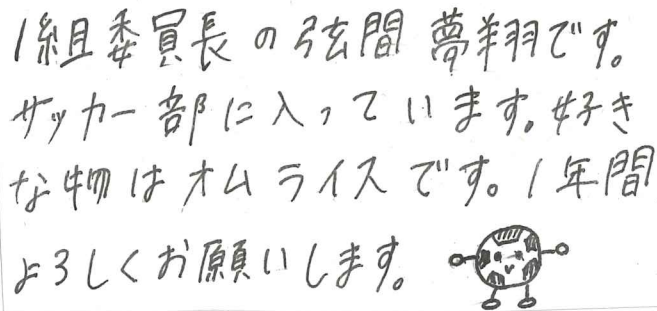 1組委員長の弦間 夢翔です。
サッカー部に入っています。好き
な物はオムライスです。1年間
よろしくお願いします。